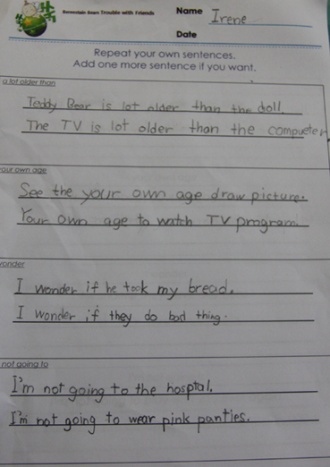 Berenstain Bears Trouble with Friends
Name Irene
Date
Repeat your own sentences.
Add one more sentence if you want.
a lot older than
Teddy Bear is lot older than the doll.
The TV is lot older than the computer
your own age
See the your own age draw picture.
Your own age to watch TV program.
wonder
I wonder if he took my bread.
I wonder if they do bad thing.
not going to
I'm not going to the hosptal.
I'm not going to wear pink panties.